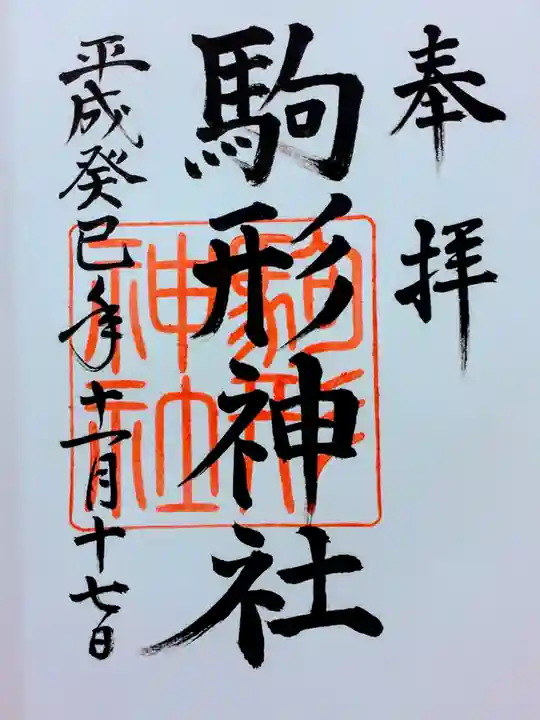 奉拝
駒形神社
平成癸巳年十一月十七日
駒形神社